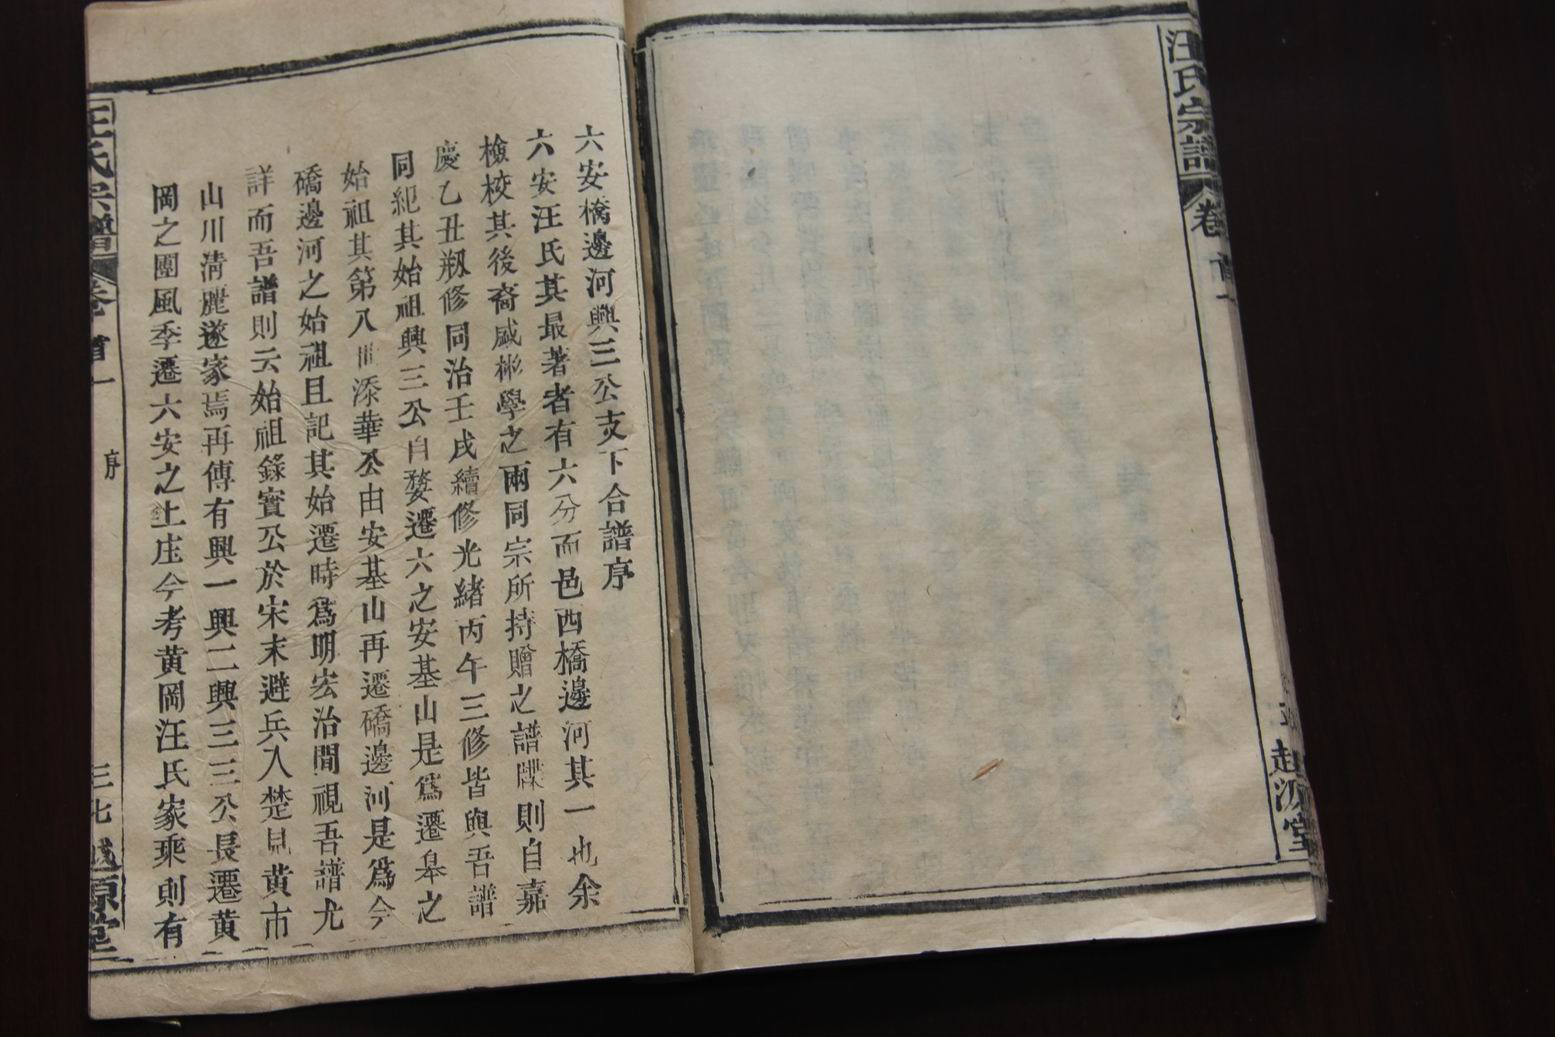 汪氏宗譜
卷首
越源堂
六安橋邊河興三公支下合譜序
六安汪氏其最著者有六分而邑西橋邊河其一也余
檢校其後裔咸彬學之兩同宗所持贈之譜牒則自嘉
慶乙丑剏修同治壬戌續修光緒丙午三修皆與吾譜
同紀其始祖興三公自婺遷六之安基山是爲遷皋之
始祖其第八世添華公由安基山再遷礄邊河是爲今
礄邊河之始祖且記其始遷時爲明宏治間視吾譜尤
詳而吾譜則云始祖錄實公於宋末避兵入楚見黃市
山川清麗遂家焉再傳有興一興二興三三公長遷黃
岡之團風季遷六安之土庄今考黃岡汪氏家乘則有
汪氏宗譜
卷首一
序
三七
越源堂